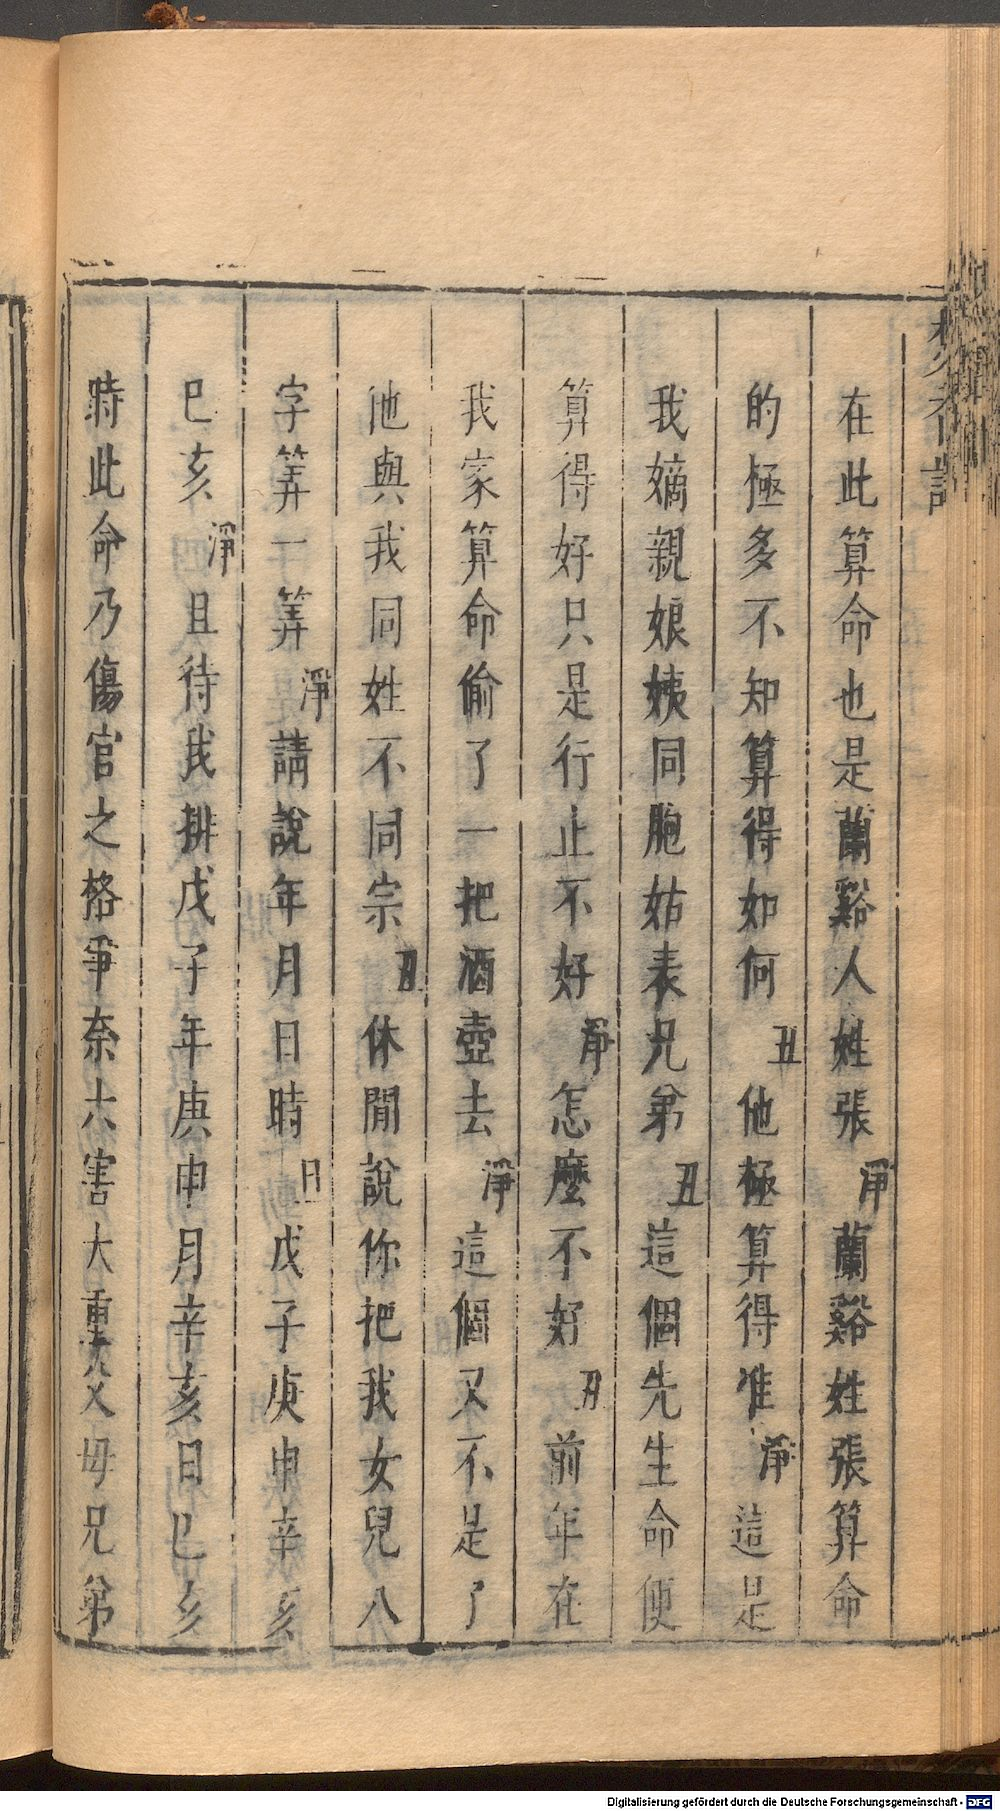 在此算命也是蘭谿人姓張淨蘭谿姓張算命
的極多不知算得如何丑他極算得准淨這是
我嫡親娘姨同胞姑表兄弟丑這個先生命便
算得好只是行止不好淨怎麼不好丑前年在
我家算命偷了一把酒壺去淨這個又不是了
他與我同姓不同宗丑休閒說你把我女兒八
字筭一筭淨請說年月日時旦戊子庚申辛亥
巳亥淨且待我排戊子年庚申月辛亥日巳亥
時此命乃傷官之格爭奈六害大重父母兄弟
Digitalisierung gefördert durch die Deutsche Forschungsgemeinschaft - DFG